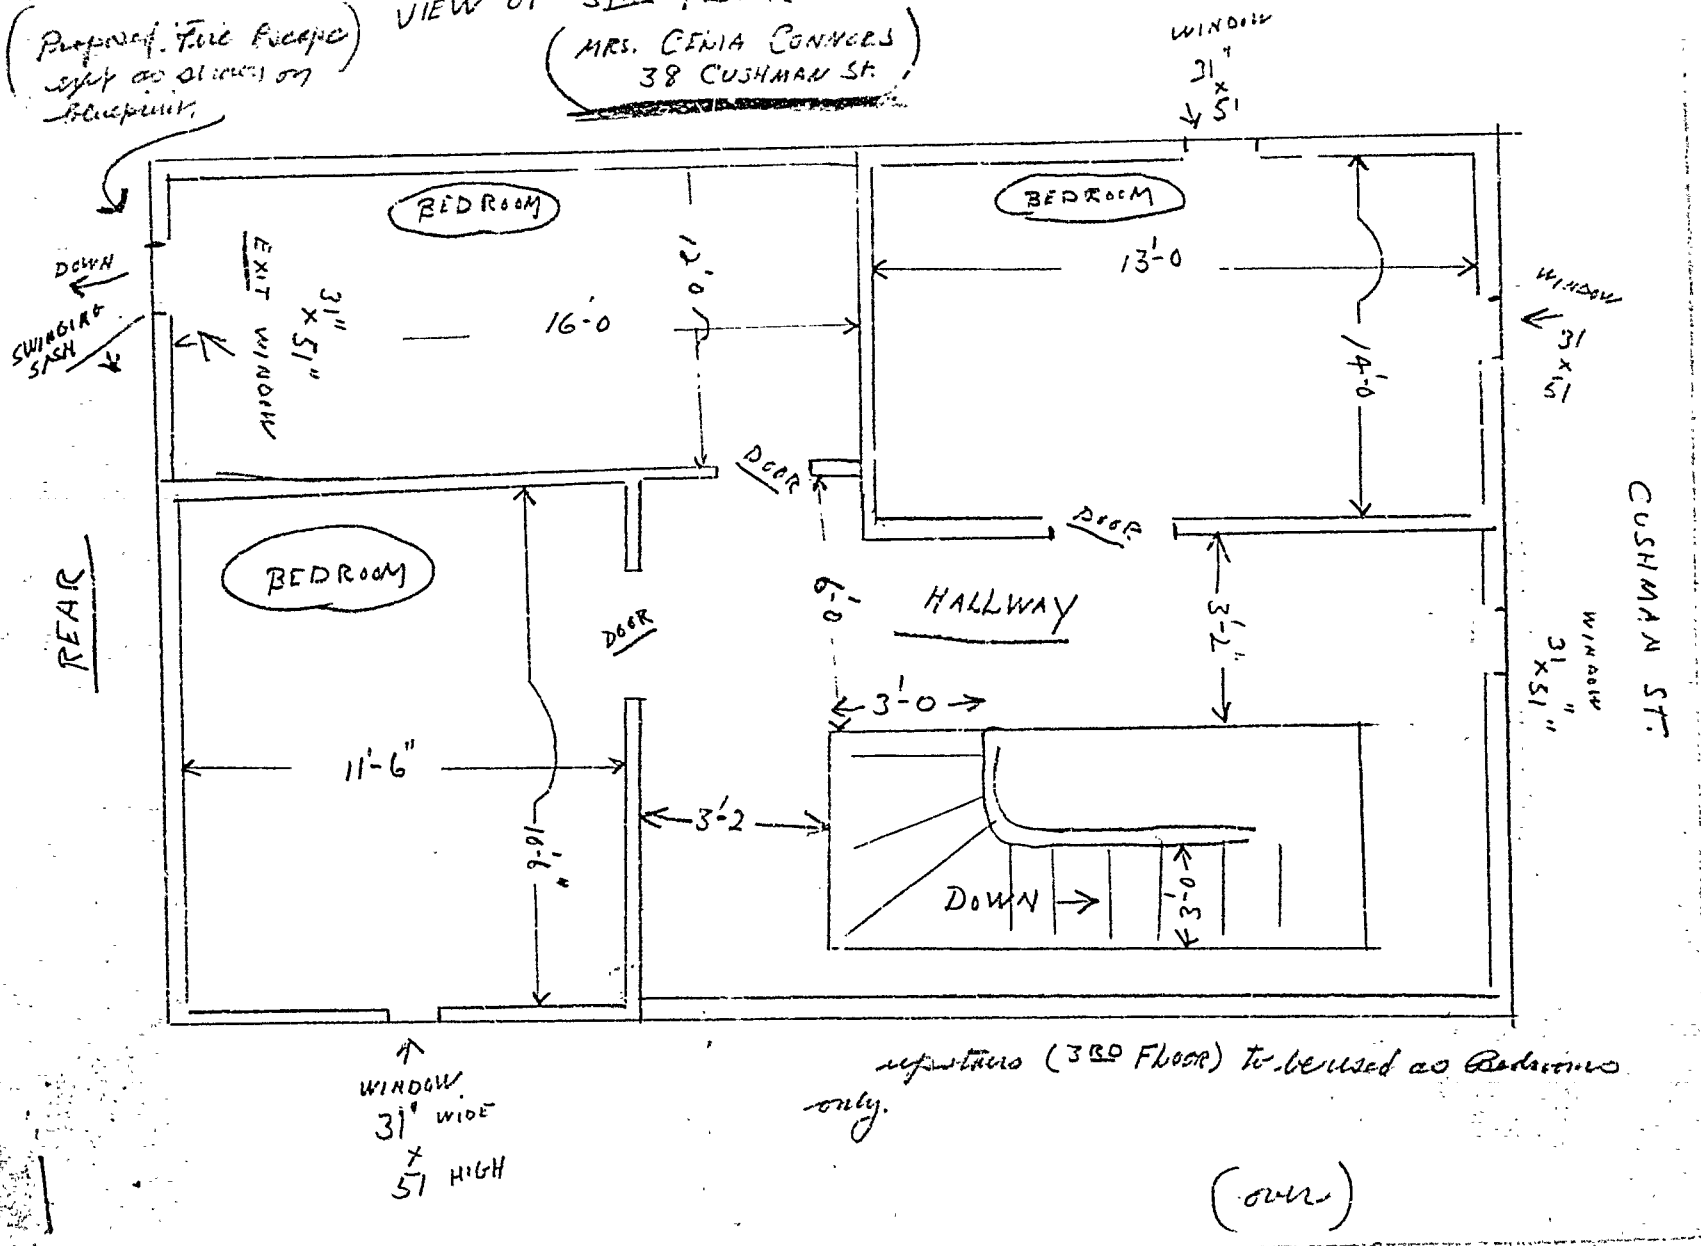 (Proposed Fire Escape
exit as shown on
blueprint.)
VIEW OF 3RD FLOOR
(MRS. CENIA CONNORS
38 CUSHMAN St.)
WINDOW
31"
x
51
BEDROOM
BEDROOM
DOWN
SWINGING
SASH
EXIT WINDOW
31"
x
51"
12'0
16'-0
13'-0
14'-0
WINDOW
31
x
51
DOOR
DOOR
CUSHMAN ST.
REAR
BEDROOM
DOOR
9'-0
HALLWAY
3'-2"
WINDOW
31"
x 51"
3'-0
11'-6"
3'-2
16'-6"
DOWN
3'-0
WINDOW
31" WIDE
x
51 HIGH
upstairs (3RD FLOOR) to be used as Bedrooms
only.
(over)